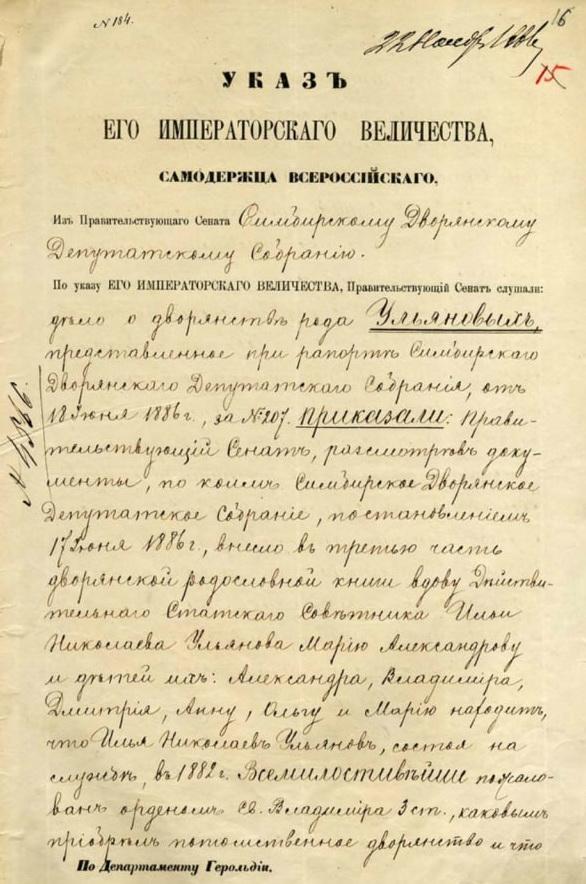 N 184.
16
22 Ноября 1886
15
УКАЗЪ
ЕГО ИМПЕРАТОРСКАГО ВЕЛИЧЕСТВА,
САМОДЕРЖЦА ВСЕРОССІЙСКАГО,
Изъ Правительствующаго Сената Симбирскому Дворянскому
Депутатскому Собранію.
По указу ЕГО ИМПЕРАТОРСКАГО ВЕЛИЧЕСТВА, Правительствующій Сенатъ слушали:
дѣло о дворянствѣ рода Ульяновыхъ,
представленное при рапортѣ Симбирскаго
Дворянскаго Депутатскаго Собранія, отъ
18 Іюня 1886 г., за № 207. Приказали: Прави-
тельствующій Сенатъ, разсмотрѣвъ доку-
менты, по коимъ Симбирское Дворянское
Депутатское Собраніе, постановленіемъ
17 Іюня 1886 г., внесло въ третью часть
дворянской родословной книги вдову Дѣйстви-
тельнаго Статскаго Совѣтника Ильи
Николаева Ульянова Марію Александрову
и дѣтей ихъ: Александра, Владиміра,
Дмитрія, Анну, Ольгу и Марію находитъ,
что Илья Николаевъ Ульяновъ, состоя на
службѣ, въ 1882 г. Всемилостивѣйше пожало-
ванъ орденомъ Св. Владиміра 3 ст., каковымъ
пріобрѣлъ потомственное дворянство и что
По Департаменту Герольдіи.